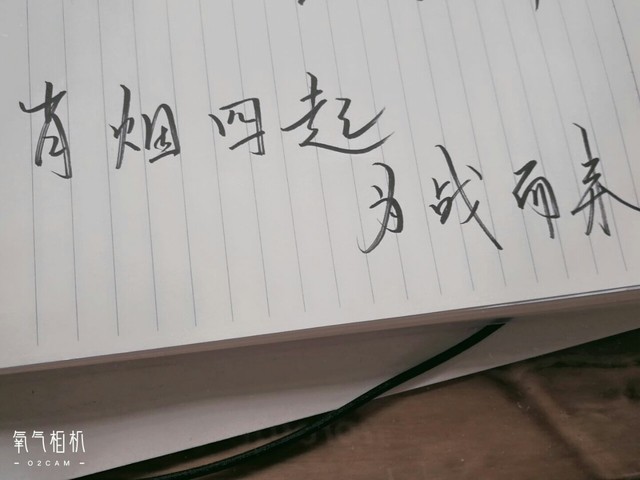 肖烟四起
为战而来
氧气相机
O2CAM